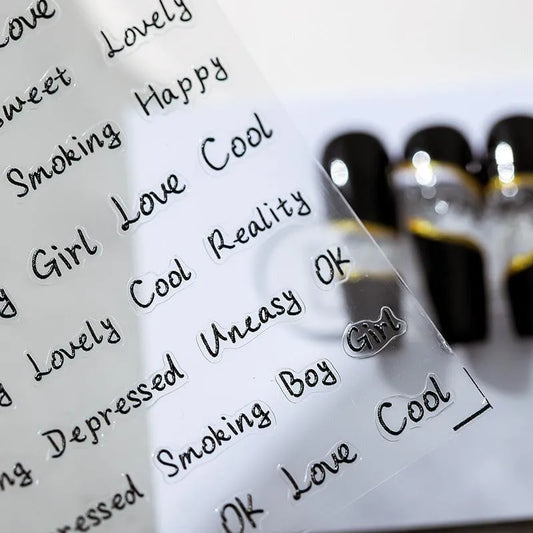 Love Lovely
Sweet Happy
Smoking Love Cool
Girl Cool Reality
Lovely Uneasy OK
Depressed Boy Girl
Smoking Love Cool
OK